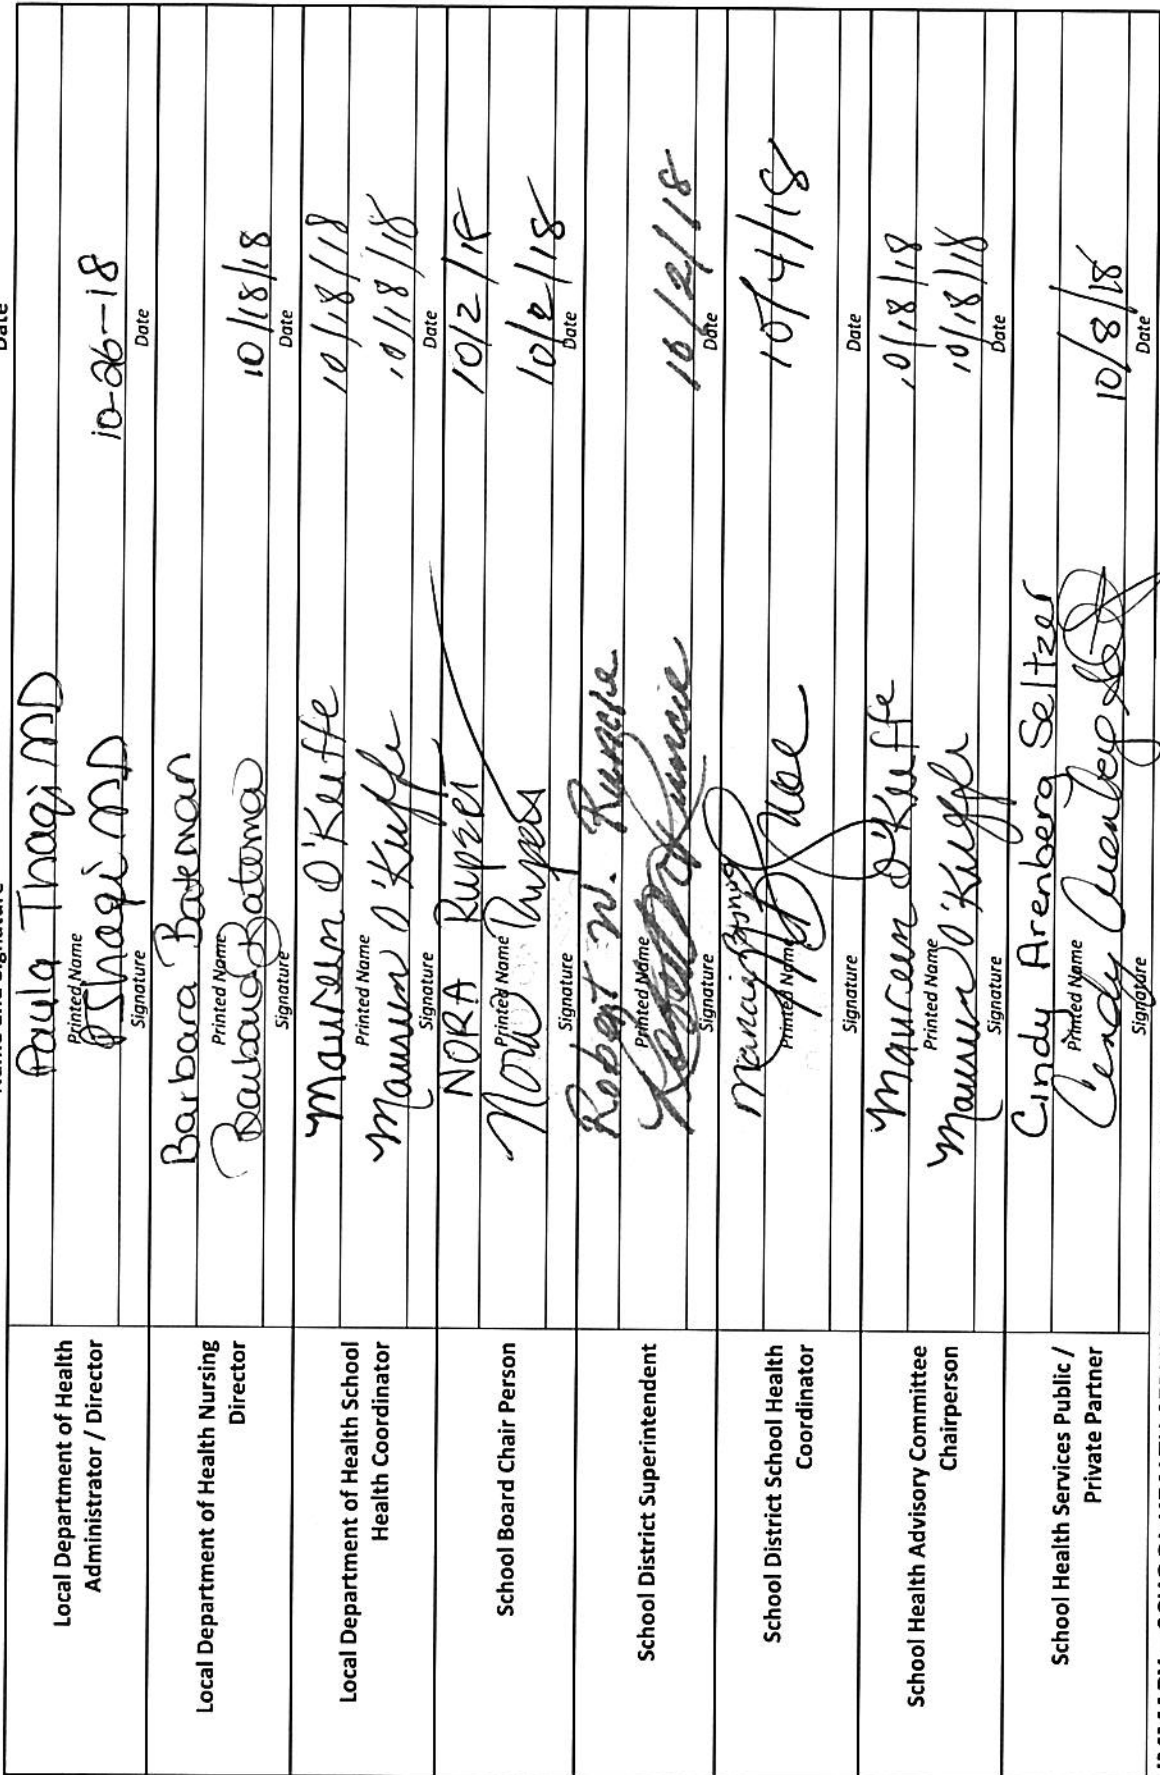 Date
Local Department of Health
Administrator / Director
Paula Thaqi MD
Printed Name
PThaqi MD 10-26-18
Signature Date
Local Department of Health Nursing
Director
Barbara Bateman
Printed Name
Barbara Bateman 10/18/18
Signature Date
Local Department of Health School
Health Coordinator
Maureen O'Keeffe 10/18/18
Printed Name
Maureen O'Keeffe 10/18/18
Signature Date
School Board Chair Person
NORA Rupert 10/2/18
Printed Name
Nora Rupert 10/2/18
Signature Date
School District Superintendent
Robert W. Runcie
Printed Name
Robert W. Runcie 10/2/18
Signature Date
School District School Health
Coordinator
Printed Name
10/4/18
Signature Date
School Health Advisory Committee
Chairperson
Maureen O'Keeffe 10/18/18
Printed Name
Maureen O'Keeffe 10/18/18
Signature Date
School Health Services Public /
Private Partner
Cindy Arenberg Seltzer
Printed Name
Cindy Arenberg 10/8/18
Signature Date